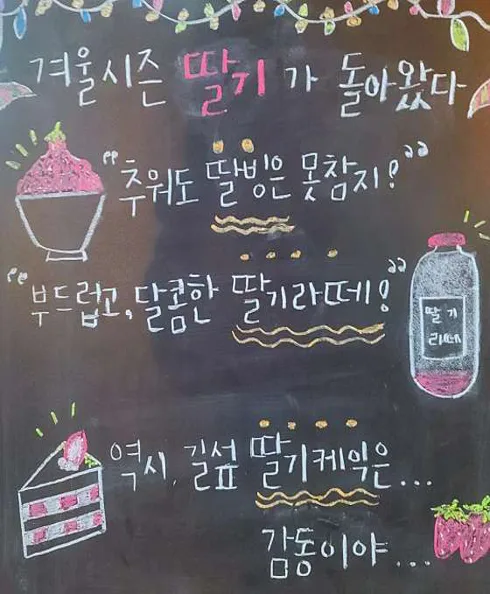 겨울시즌 딸기가 돌아왔다
"추워도 딸빙은 못참지!"
"부드럽고, 달콤한 딸기라떼!"
딸기
라떼
역시, 길섶 딸기케익은...
감동이야...